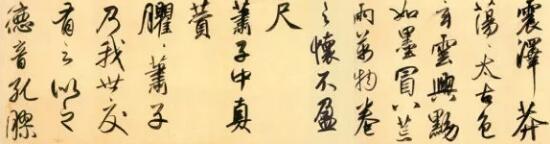 震澤莽
蕩〻太古色
玄雲興黝
如墨冒八荒
雨萬物卷
之懷不盈
尺
蕭子中真
贊
臞〻蕭子
乃我世交
有之似之
德音孔膠